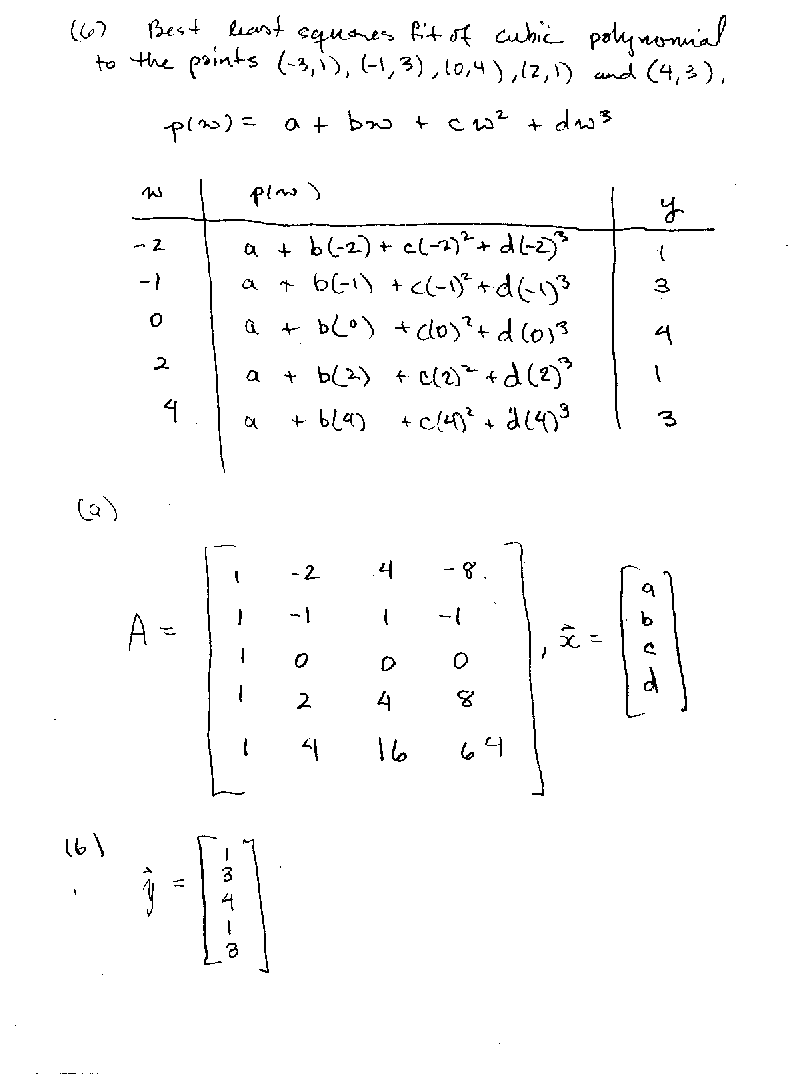 (6) Best least squares fit of cubic polynomial
to the points (-3,1), (-1,3), (0,4), (2,1) and (4,3).
p(w) = a + bw + cw² + dw³
w p(w) y
-2 a + b(-2) + c(-2)² + d(-2)³ 1
-1 a + b(-1) + c(-1)² + d(-1)³ 3
0 a + b(0) + c(0)² + d(0)³ 4
2 a + b(2) + c(2)² + d(2)³ 1
4 a + b(4) + c(4)² + d(4)³ 3
(a)
1 -2 4 -8
1 -1 1 -1 a
A = 1 0 0 0 , x⃗ = b
1 2 4 8 c
1 4 16 64 d
(b)
y⃗ = 1
3
4
1
3